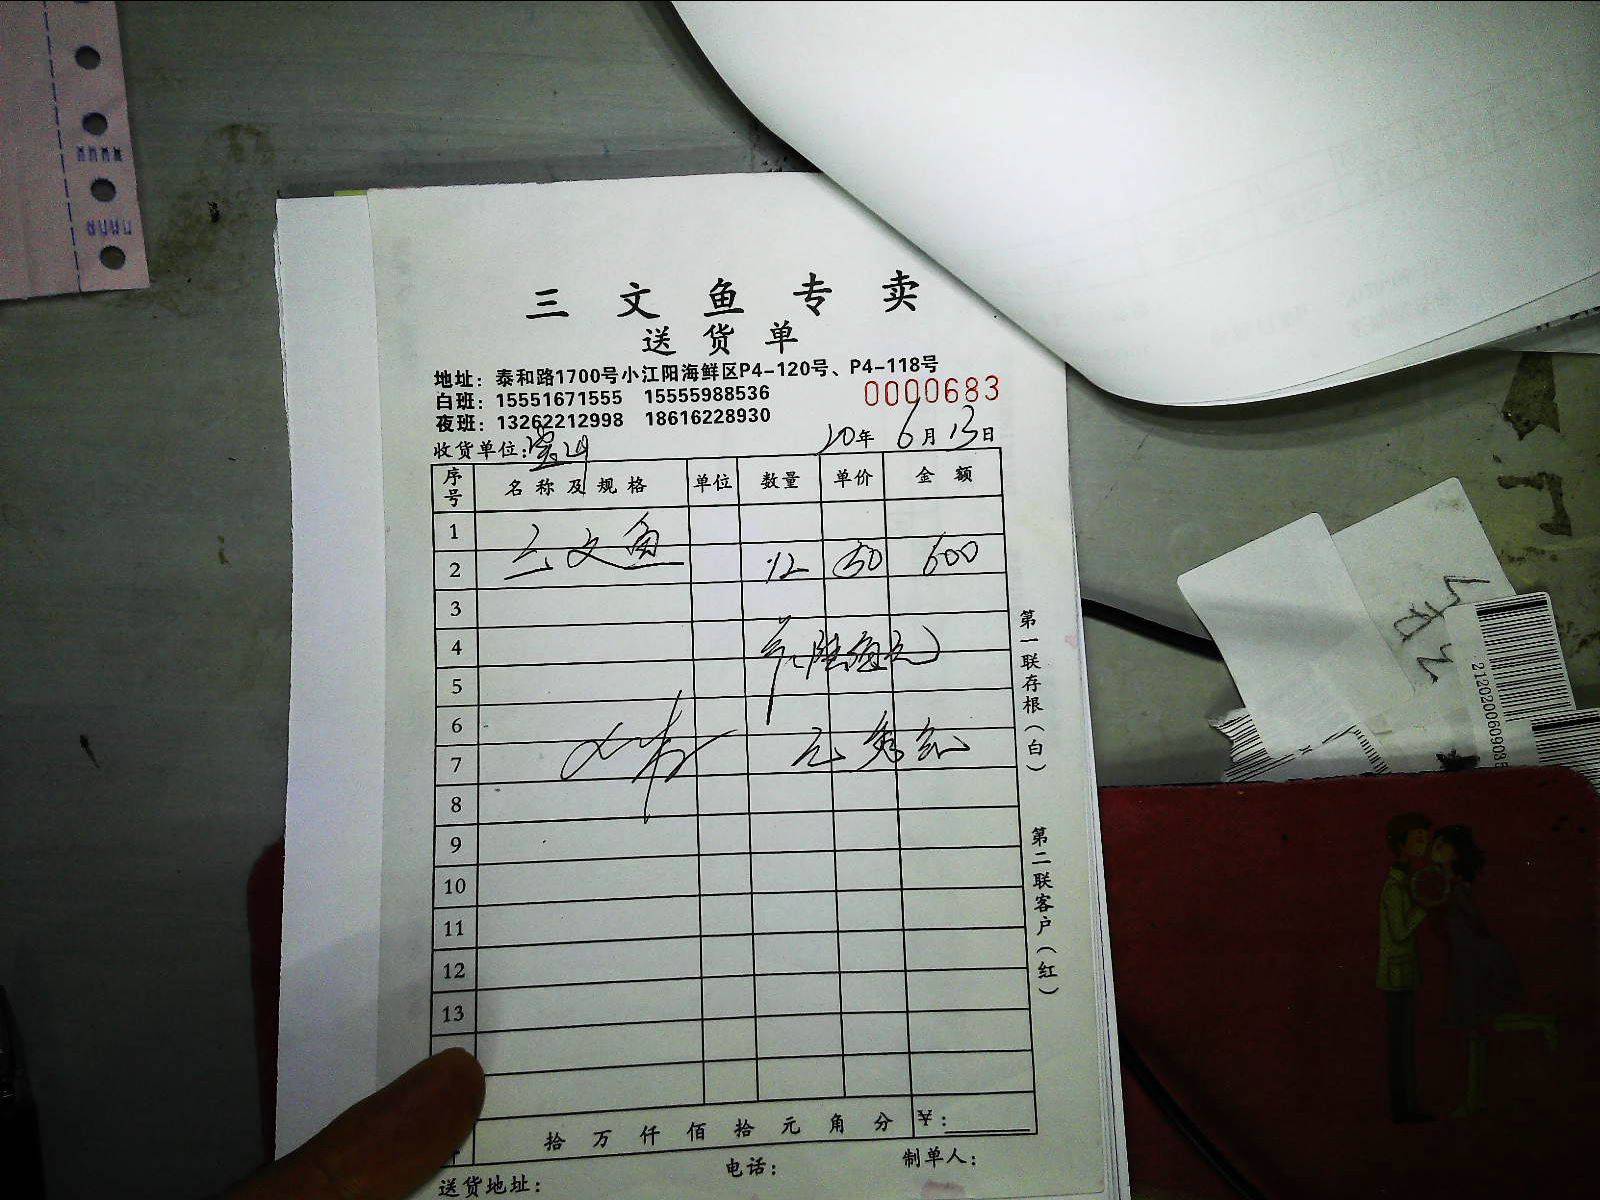 三文鱼专卖
送货单
地址：泰和路1700号小江阳海鲜区P4-120号、P4-118号
白班：15551671555 15555988536
0000683
夜班：13262212998 18616228930
收货单位：宝山 20年6月13日
序号 名称及规格 单位 数量 单价 金额
1 三文鱼
2 12 50 600
3
4
5
6
7
8
9
10
11
12
13
拾万仟佰拾元角分 ¥：
送货地址： 电话： 制单人：
第一联存根（白）
第二联客户（红）